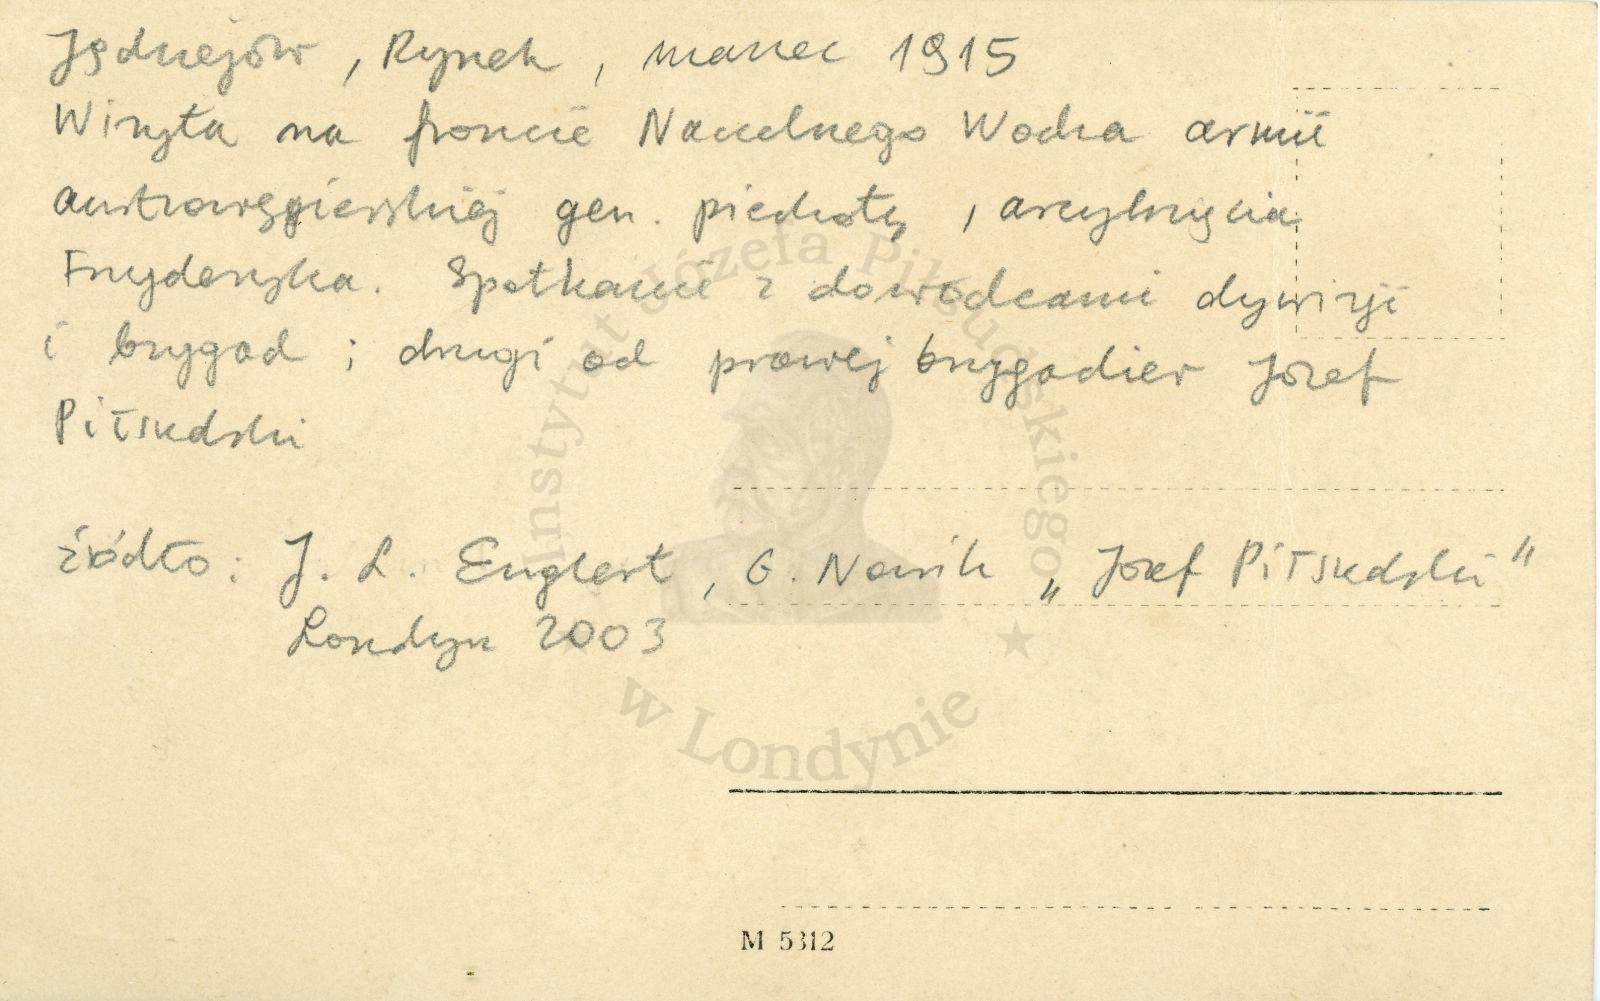 Jędrzejów, Rynek, marzec 1915
Wizyta na froncie Naczelnego Wodza armii
austrowęgierskiej gen. piechoty, arcyksięcia
Fryderyka. Spotkanie z dowódcami dywizji
i brygad; drugi od prawej brygadier Józef
Piłsudski
źródło: J. L. Englert, G. Nowik „Józef Piłsudski"
Londyn 2003
Instytut Józefa Piłsudskiego
w Londynie
M 5312